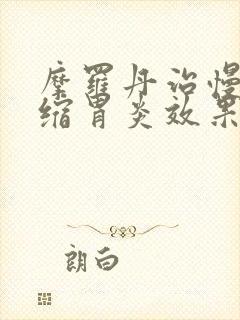 摩羅丹治慢
缩胃炎效果
朗白